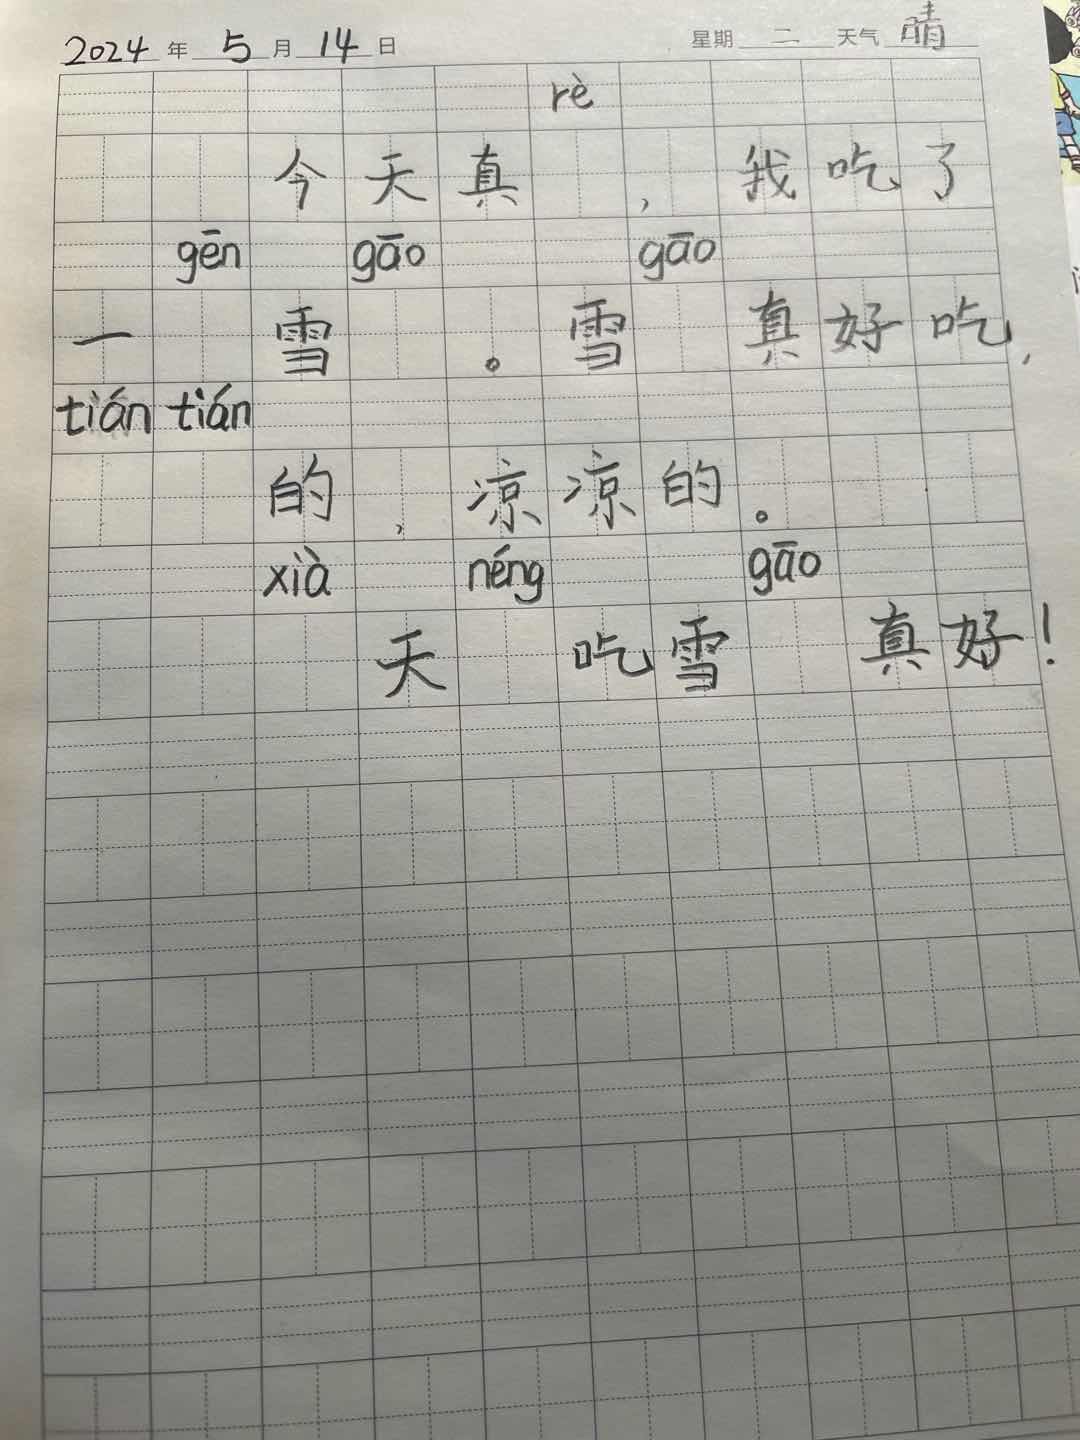 2024 年 5 月 14 日 星期 二 天气 晴
rè
今天真 ，我吃了
gēn gāo gāo
一 雪 。雪 真好吃，
tián tián
的，凉凉的。
xià néng gāo
天 吃雪 真好！